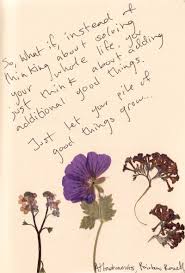 So, what if, instead of
thinking about solving
your whole life, you
just think about adding
additional good things.
Just let your pile of
good things grow...
Attachments, Rainbow Rowell